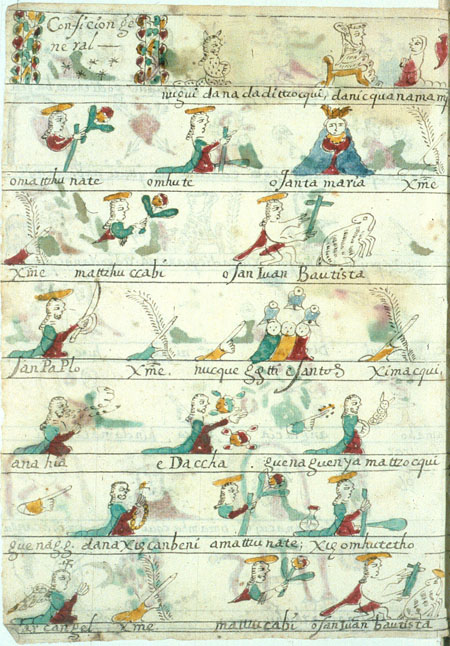 Confiсion ge
neral
nugui dana dadittzoqui, danicquanamamp
omatthu nate omhute o Santa maria Xme
Xme. mattzhu ccabi o San Juan Bautista
San Paplo Xme. nucque ggtti e Santos Ximacqui,
ana hia e Daccha guenaguenya mattzocqui
guenagg. dana Xigcanbeni amattu nate; Xigomhutetho
arcangel Xme mattucabi o San Juan Bautista